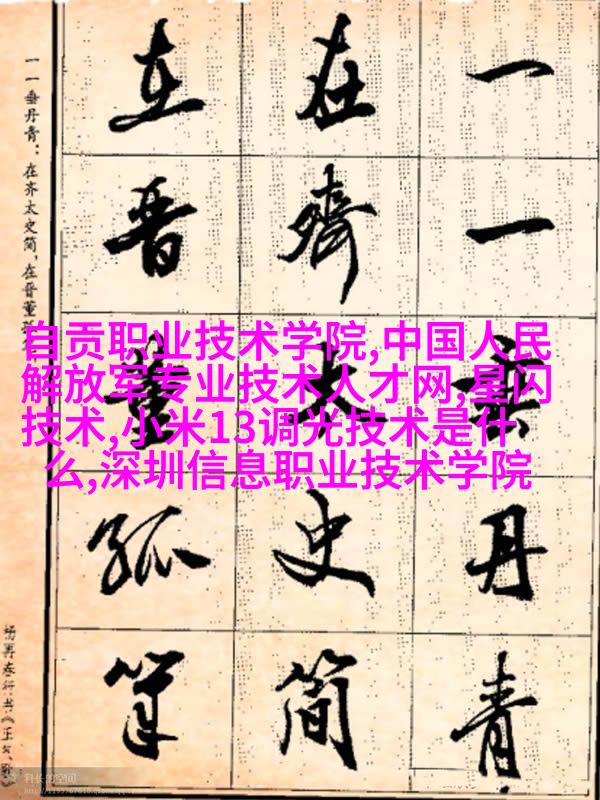 一一垂丹青
在齊太史简
在晋董狐筆
一一垂丹青：在齐太史简，在晋董
杨再春行书《正气
自贡职业技术学院,中国人民
解放军专业技术人才网,星闪
技术,小米13调光技术是什
么,深圳信息职业技术学院
科长的空间